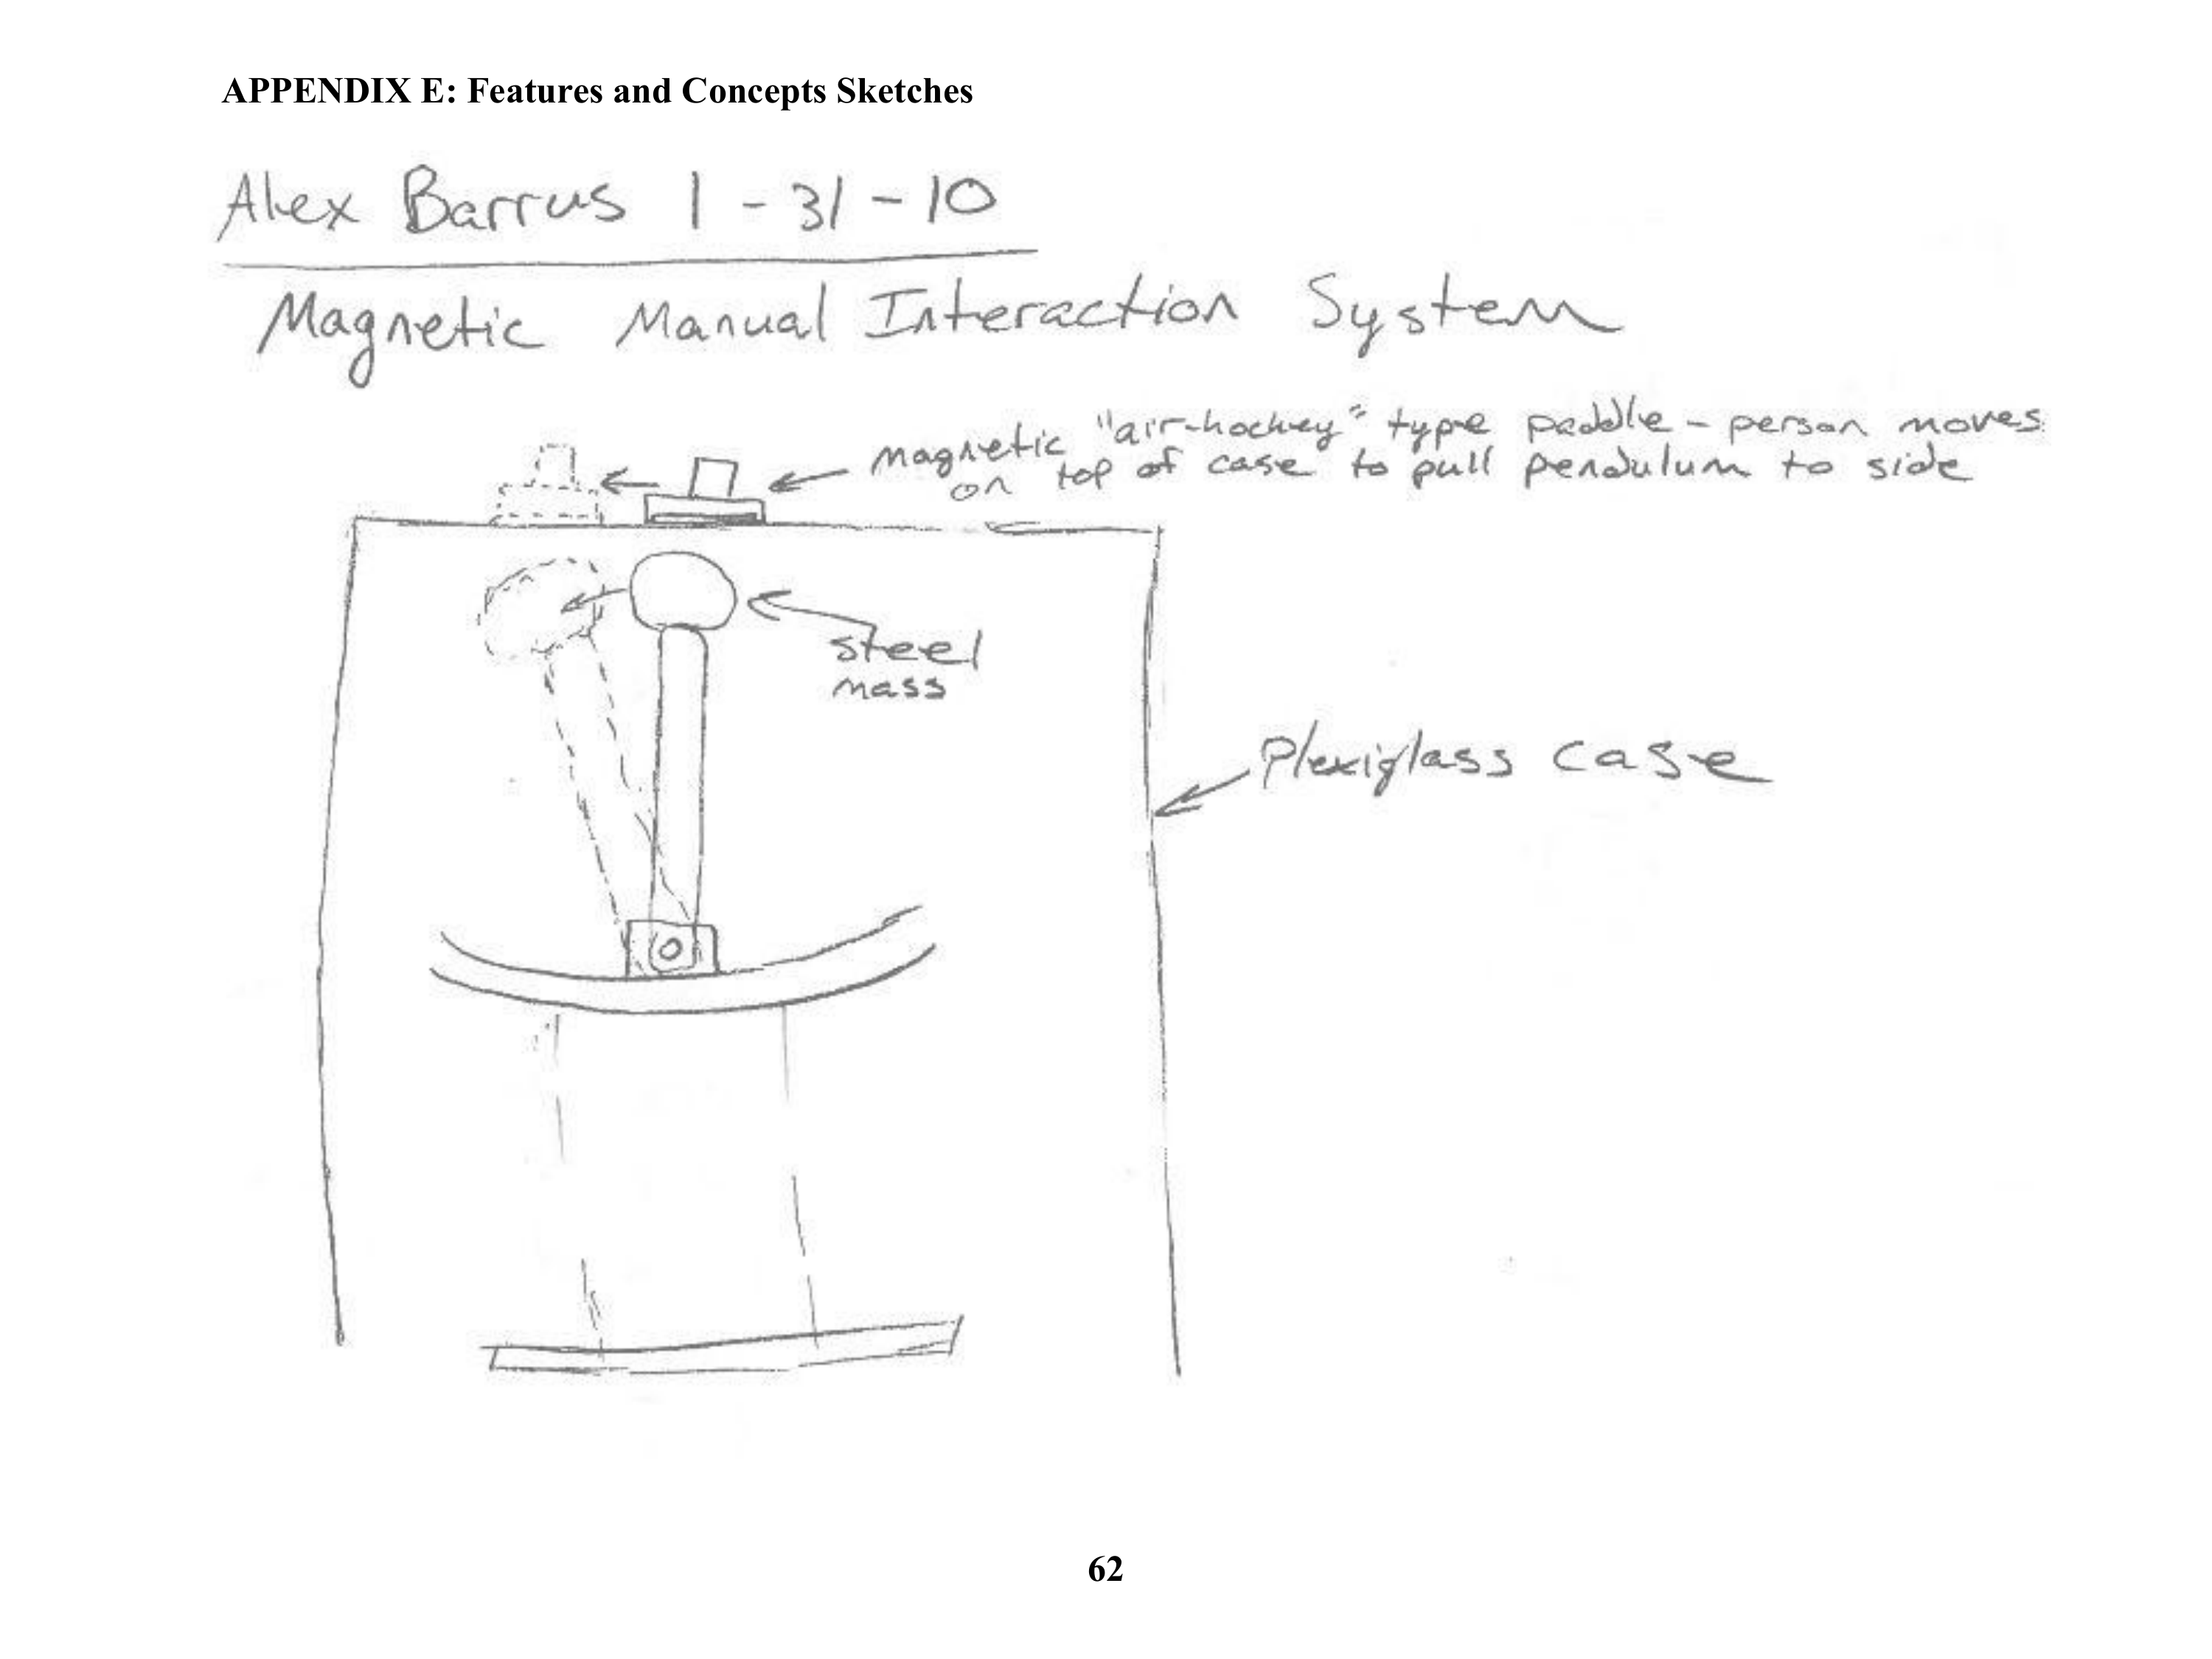 APPENDIX E: Features and Concepts Sketches
Alex Barrus 1-31-10
Magnetic Manual Interaction System
magnetic "air-hockey" type paddle - person moves
on top of case to pull pendulum to side
steel
mass
Plexiglass case
62